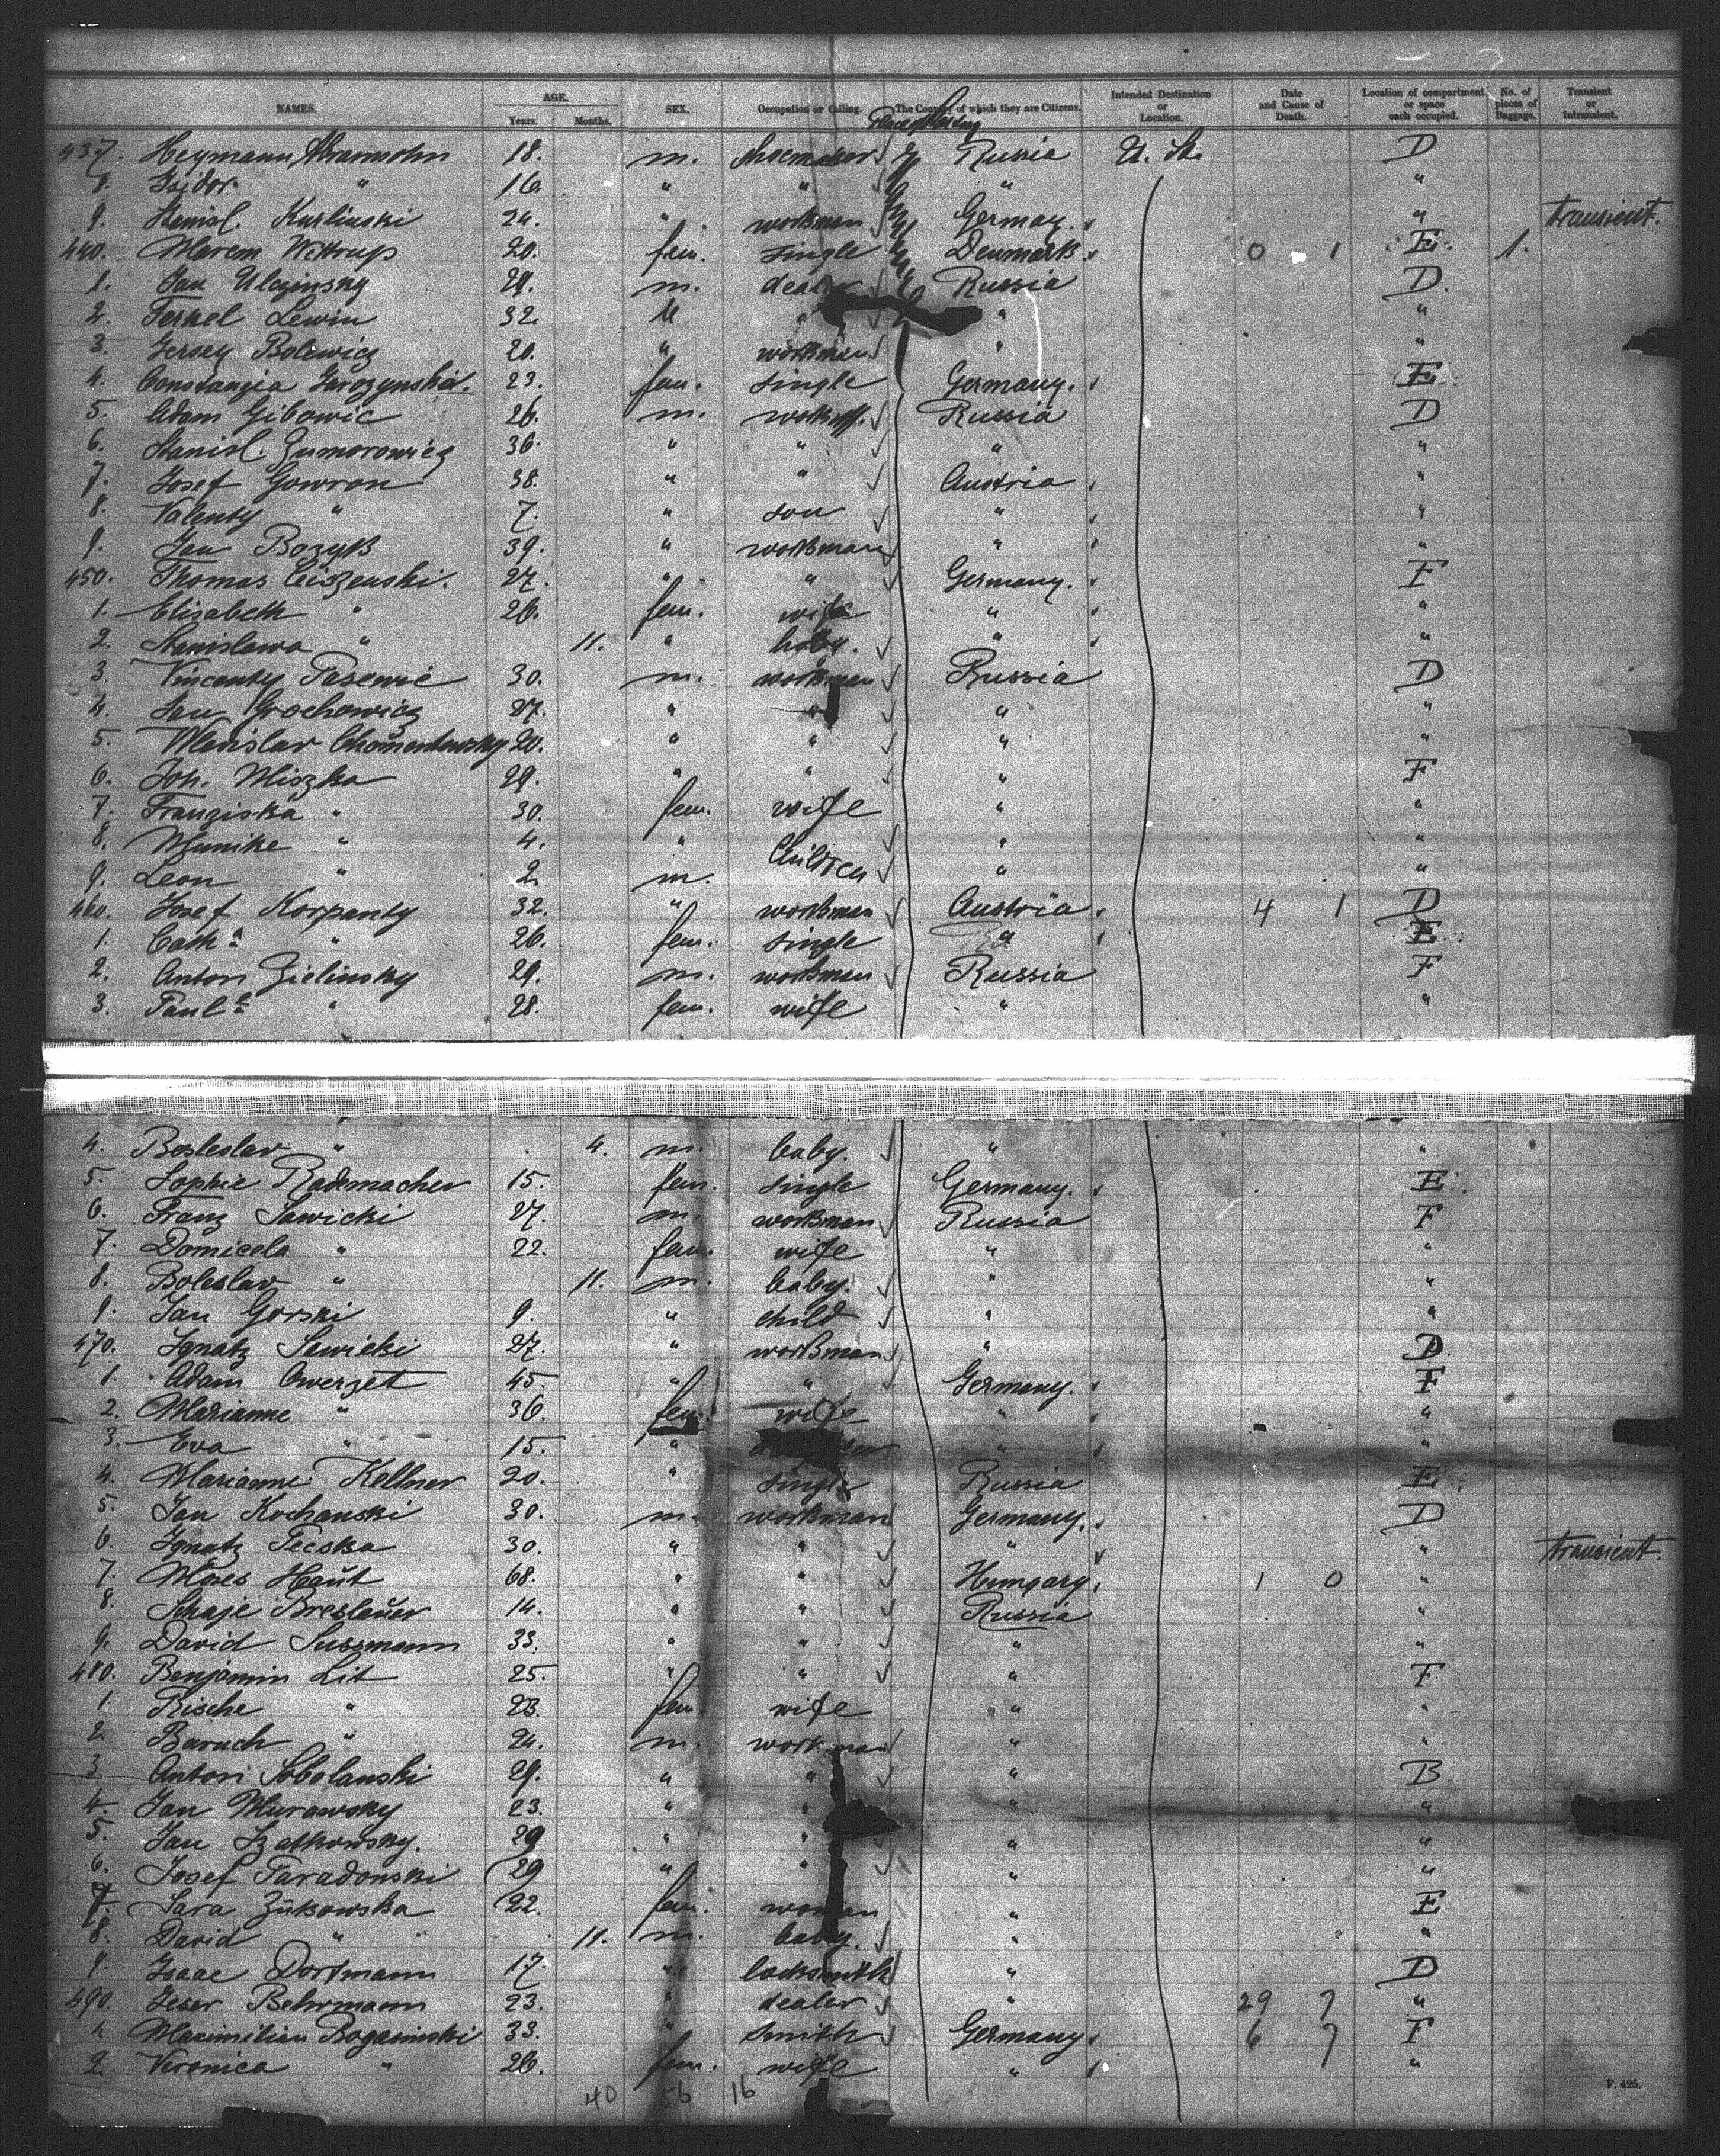 NAMES. AGE. Years. Months. SEX. Occupation or Calling. The Country of which they are Citizens. Intended Destination or Location. Date and Cause of Death. Location of compartment or space each occupied. No. of pieces of Baggage. Transient or Intransient.
437. Heymann Abramsohn 18. m. shoemaker Russia U. St. D
8. Isidor " 16. " " " "
9. Stanisl. Kurlinski 24. " workman Germany. " transient.
440. Maren Wettrup 20. fem. single Denmark. 0 1 E. 1.
1. Jan Ulczinsky 29. m. dealer Russia D.
2. Ferkel Lewin 32. M " " "
3. Jersey Bolewicz 20. " workman " "
4. Constanzia Jarozynska. 23. fem. single Germany. E
5. Adam Gibowic 26. m. workm. Russia D
6. Stanisl. Zumorowicz 36. " " " "
7. Josef Gowron 38. " " Austria "
8. Valenty " 7. " son " "
9. Jan Bozyk 39. " workman " "
450. Thomas Ciszenski. 27. " " Germany. F
1. Elisabeth " 26. fem. wife " "
2. Stanislawa " 11. " baby. " "
3. Vincenty Pasewic 30. m. workman Russia D
4. Jan Grochowicz 27. " " " "
5. Wladislav Chomentowsky 20. " " " "
6. Joh. Miszka 29. " " " F
7. Franziska " 30. fem. wife " "
8. " 4. " Children " "
9. Leon " 2. m. " "
460. Josef Korpanty 32. " workman Austria. 4 1 D
1. Cath.a " 26. fem. single " E
2. Anton Zielinsky 29. m. workman Russia F
3. Paul.e " 28. fem. wife " "
4. Bosleslav " 4. m. baby. " "
5. Sophie Rademacher 15. fem. single Germany. E.
6. Franz Sawicki 27. m. workman Russia F
7. Domicela " 22. fem. wife " "
8. Boleslav " 11. m. baby. " "
9. Jan Gorski 9. " child " "
470. Ignatz Sawicki 27. " workman " D.
1. Adam Owerzet 45. " " Germany. F
2. Marianne " 36. fem. wife " "
3. Eva " 15. " " "
4. Marianne Kellner 20. " single Russia E.
5. Jan Kochanski 30. m. workman Germany. D
6. Ignatz Tecska 30. " " " " transient.
7. Moses Haŭt 68. " " Hungary. 1 0 "
8. Schaje Breslaŭer 14. " " Russia "
9. David Sussmann 33. " " " "
480. Benjamin Lit 25. " " " F
1. Rische " 23. fem. wife " "
2. Baruch " 24. m. workman " "
3. Anton Sobolanski 29. " " " B
4. Jan Murawsky 23. " " " "
5. Jan Szatkowsky. 29 " " " "
6. Josef Taradonski 29 " " " "
7. Sara Zŭkowska 22. fem. woman " E
8. David " 11. m. baby. " "
9. Isaac Dortmann 17. " locksmith " D
490. Leser Behrmann 23. " dealer " 29 7 "
1. Maximilian Rogasinski 33. " smith Germany. 6 7 F
2. Veronica " 26. fem. wife " "
40 56 16
F. 425.